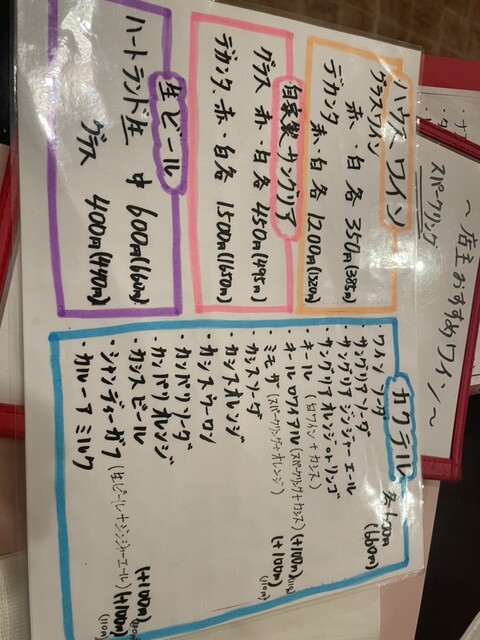 ハウスワイン
グラスワイン
赤・白 各 350円(385円)
デカンタ 赤・白 各 1200円(1320円)
自家製サングリア
グラス 赤・白 各 450円(495円)
デカンタ 赤・白 各 1500円(1650円)
生ビール
ハートランド生 中 600円(660円)
グラス 400円(440円)
カクテル 各600円
(660円)
・ワインソーダ
・サングリアソーダ
・サングリアジンジャーエール
・サングリアオレンジ・トリンゴ
・キール(白ワイン+カシス)
・キールロワイアル(スパークリング+カシス) (+100円)(110円)
・ミモザ(スパークリング+オレンジ) (+100円)(110円)
・カシスソーダ
・カシスオレンジ
・カシスウーロン
・カンパリソーダ
・カンパリオレンジ
・カシスビール (+100円)(110円)
・シャンディーガフ(生ビール+ジンジャーエール) (+100円)(110円)
・カルーアミルク
〜店主おすすめワイン〜
スパークリング